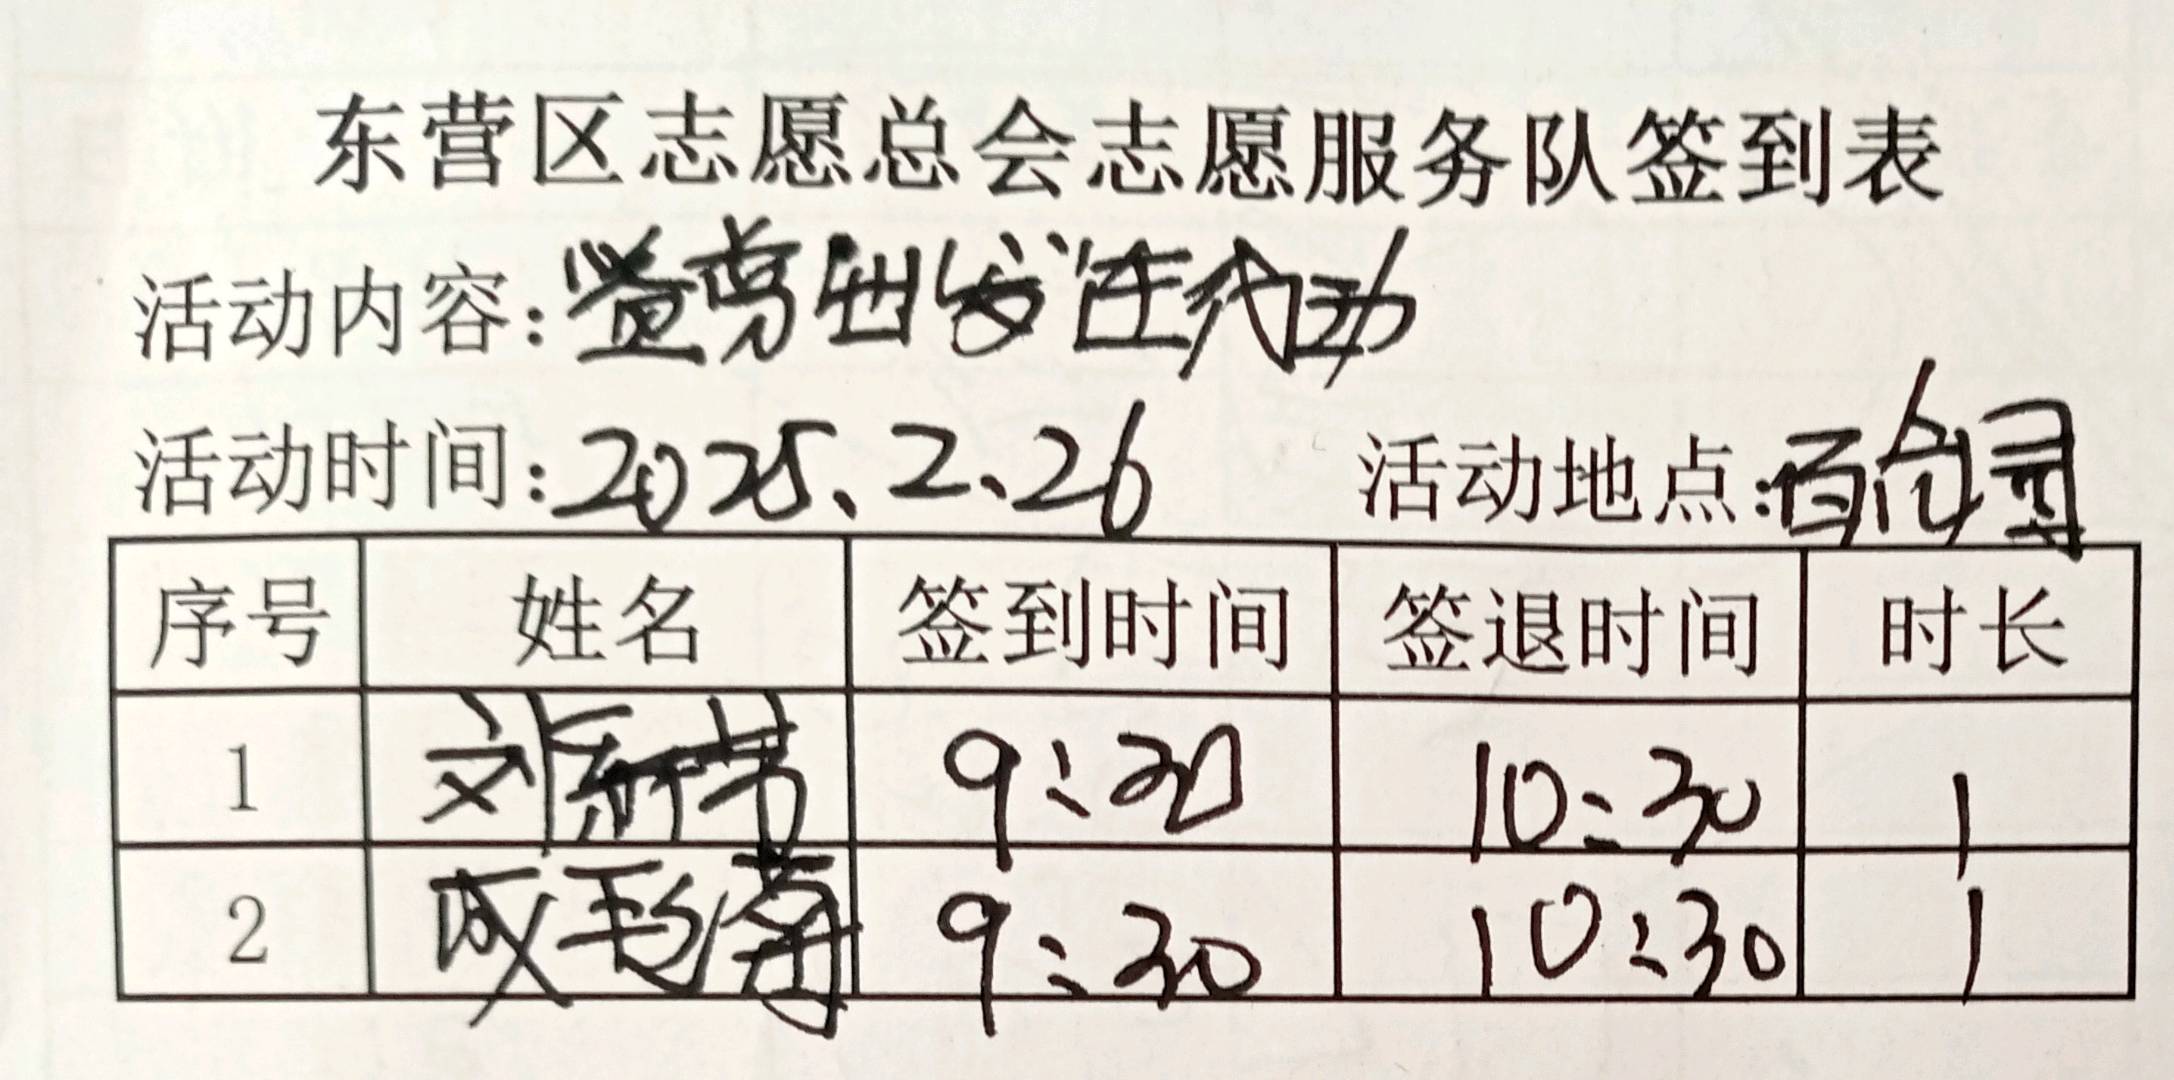 东营区志愿总会志愿服务队签到表
活动内容:
活动时间:2025.2.26 活动地点:百合园
序号 姓名 签到时间 签退时间 时长
1 刘新芳 9:30 10:30 1
2 9:30 10:30 1